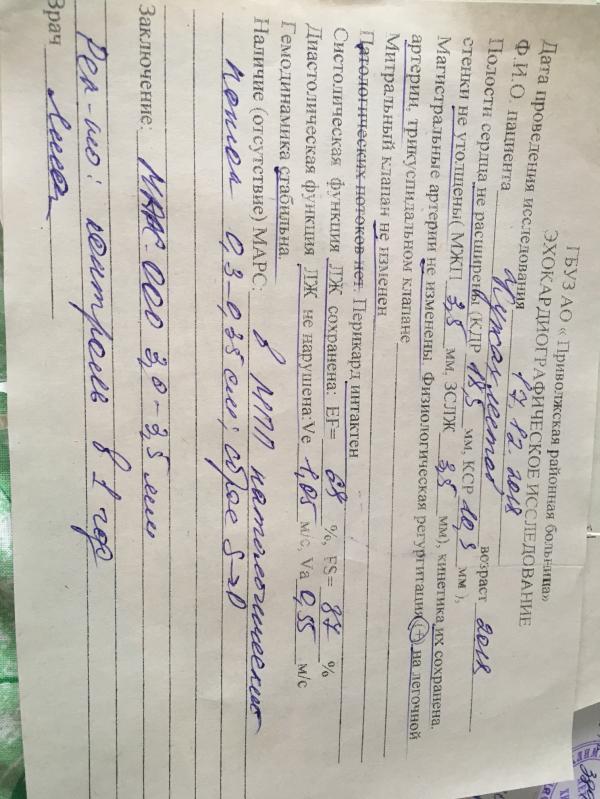 ГБУЗ АО « Приволжская районная больница»
ЭХОКАРДИОГРАФИЧЕСКОЕ ИССЛЕДОВАНИЕ
Дата проведения исследования 17.12.2018
Ф.И.О. пациента возраст 2018
Полости сердца не расширены (КДР 18,5 мм, КСР 10,5 мм ),
стенки не утолщены( МЖП 3,5 мм, ЗСЛЖ 3,5 мм), кинетика их сохранена.
Магистральные артерии не изменены. Физиологическая регургитация (+) на легочной
артерии, трикуспидальном клапане
Митральный клапан не изменен
Патологических потоков нет. Перикард интактен
Систолическая функция ЛЖ сохранена: EF= 68 %, FS= 37 %
Диастолическая функция ЛЖ не нарушена:Ve 1,05 м/с, Va 0,55 м/с
Гемодинамика стабильна
Наличие (отсутствие) МАРС: в МПП патологический
поток 0,3-0,35 см; сброс S→D
Заключение: МАРС. ООО 3,0-3,5 мм
Рек-но: контроль в 1 год
Врач